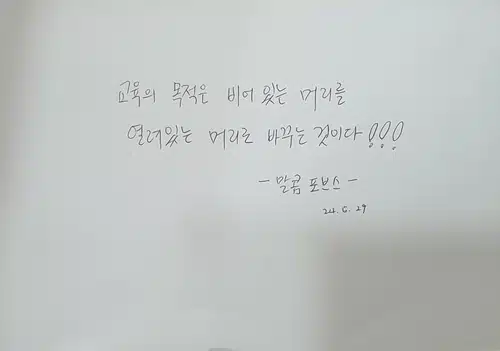 교육의 목적은 비어있는 머리를
열려있는 머리로 바꾸는 것이다!!!
- 말콤 포브스 -
24. 6. 29